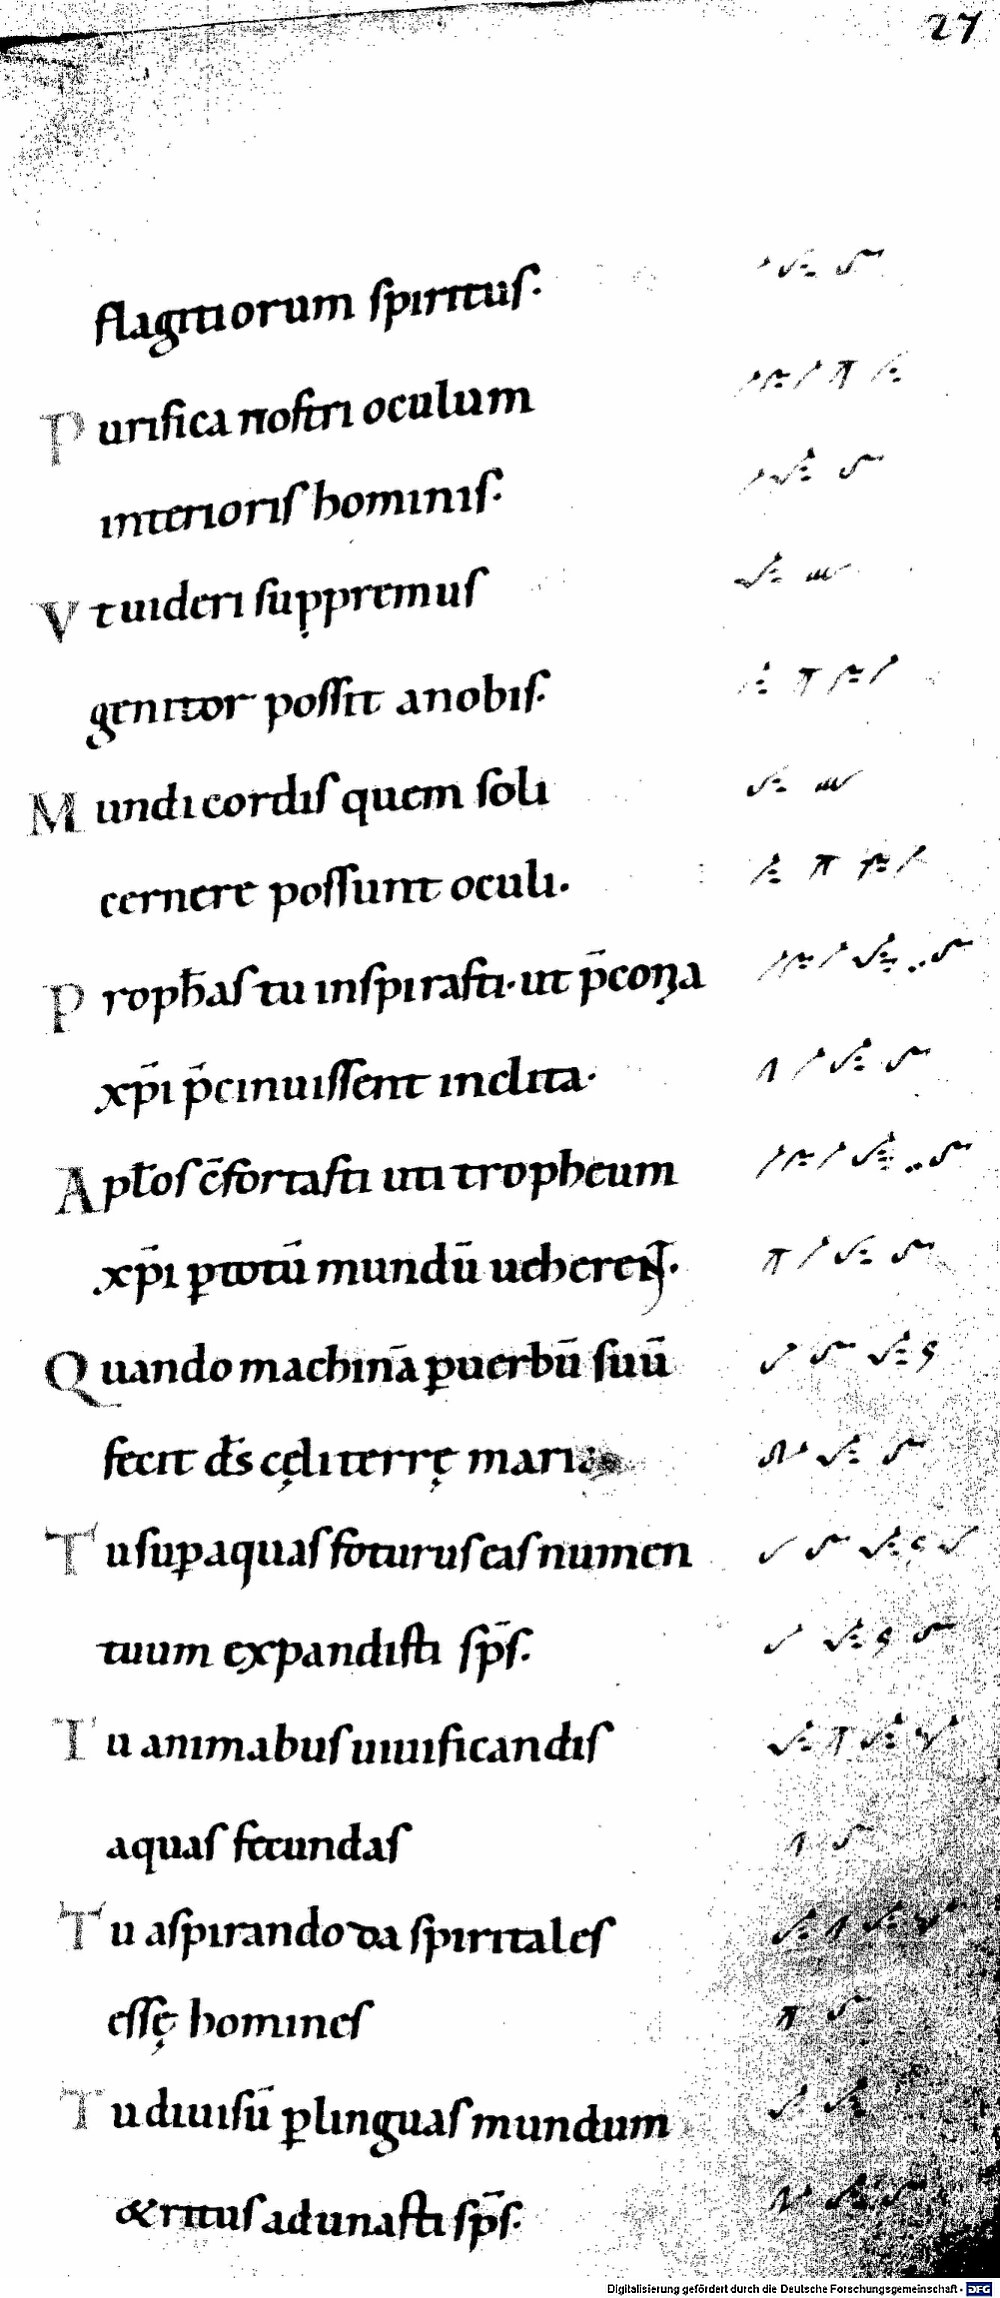 27
flagitiorum spiritus.
Purifica nostri oculum
interioris hominis.
Vt uideri suppremus
genitor possit anobis.
Mundi cordis quem soli
cernere possunt oculi.
Proph̄as tu inspirasti. ut p̄cona
xp̄i p̄cinuissent inclita.
Apl̄os c̄fortasti uti tropheum
xp̄i ꝑ totū mundū ueherent.
Quando machinā ꝑ uerbū suū
fecit d̄s cęli terrę
Tu suꝑ aquas foturus eas numen
tuum expandisti sp̄s.
Tu animabus uiuificandis
aquas fecundas
Tu aspirando da spiritales
essę homines
Tu diuisū ꝑ linguas mundum
& ritus adunasti sp̄s.
Digitalisierung gefördert durch die Deutsche Forschungsgemeinschaft - DFG